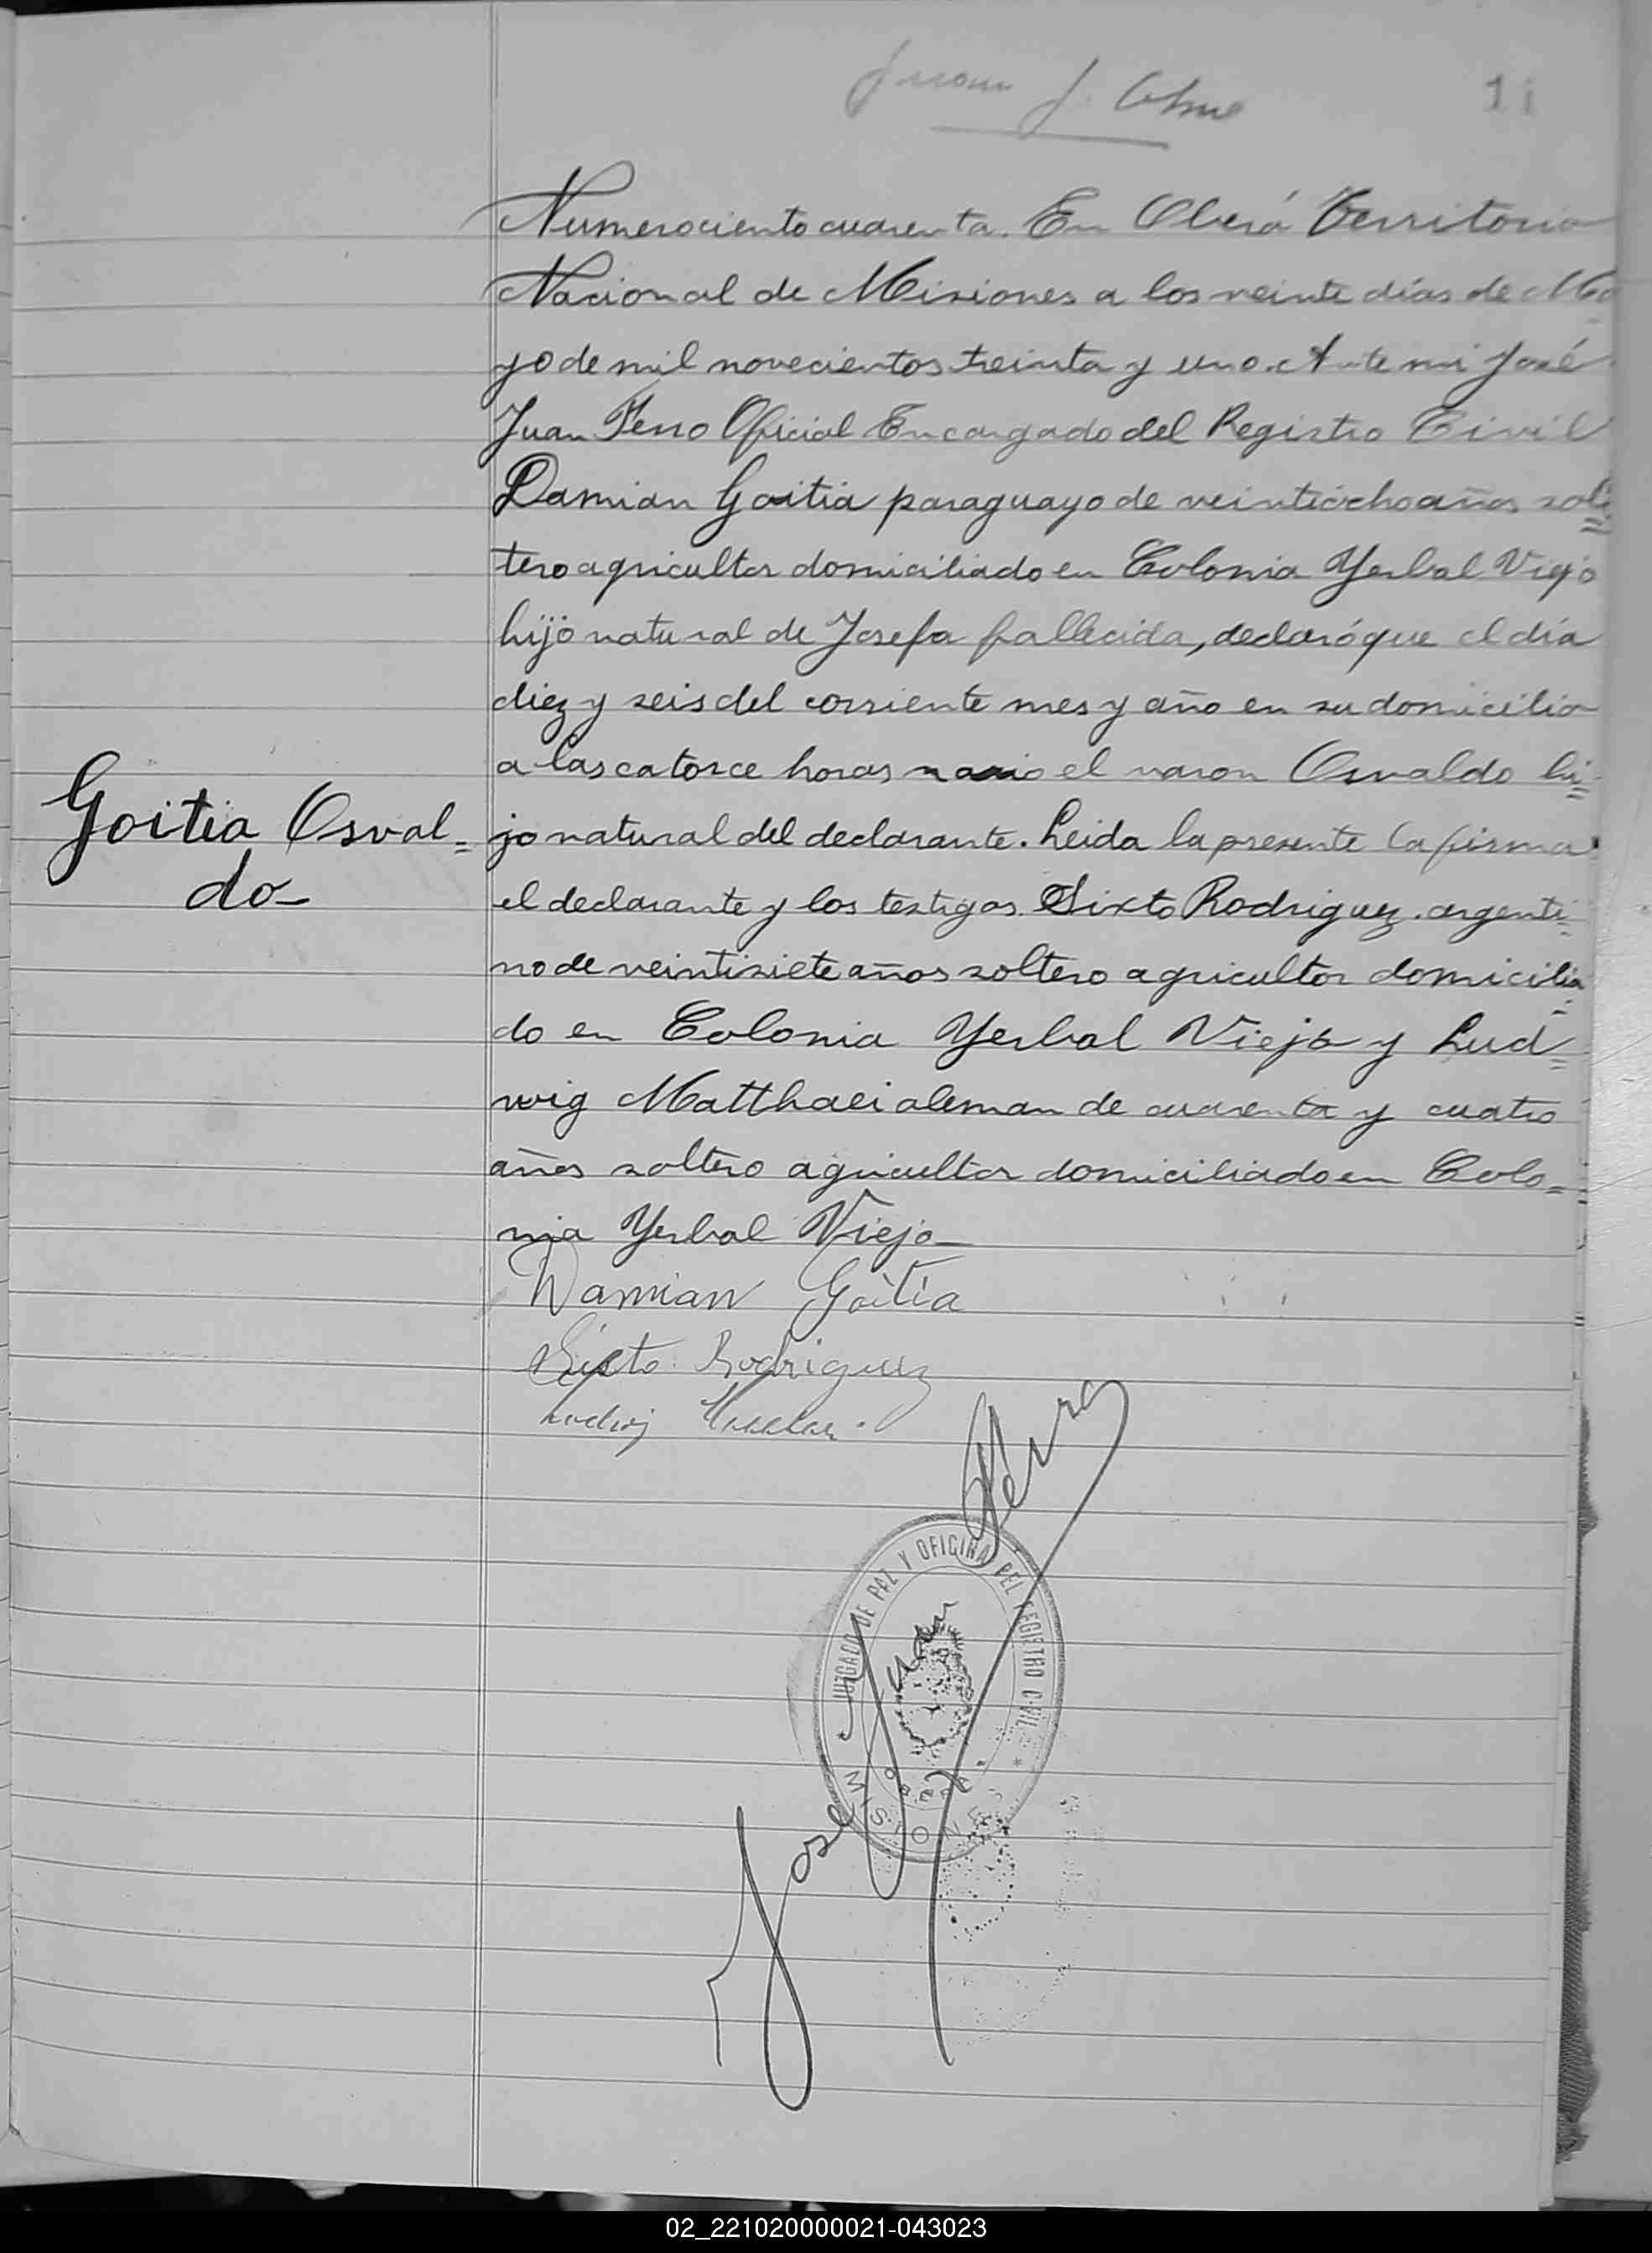 Numero ciento cuarenta. En Oberá Territorio
Nacional de Misiones a los veinte días de Ma
yo de mil novecientos treinta y uno. Ante mi José
Juan Ferro Oficial Encargado del Registro Civil
Damian Goitia paraguayo de veintiocho años sol=
tero agricultor domiciliado en Colonia Yerbal Viejo
hijo natural de Josefa fallecida, declaró que el día
diez y seis del corriente mes y año en su domicilio
a las catorce horas nacio el varon Osvaldo hi=
Goitia Osval=
do-
jo natural del declarante. Leida la presente la firma
el declarante y los testigos Sixto Rodriguez. argenti=
no de veintisiete años soltero agricultor domicilia=
do en Colonia Yerbal Viejo y Lud=
wig Matthaei aleman de cuarenta y cuatro
años soltero agricultor domiciliado en Colo=
nia Yerbal Viejo-
Damian Goitia
Sixto Rodriguez
Ludwig
José Juan Ferro
JUZGADO DE PAZ Y OFICINA DEL REGISTRO CIVIL *
MISIONES
02_221020000021-043023